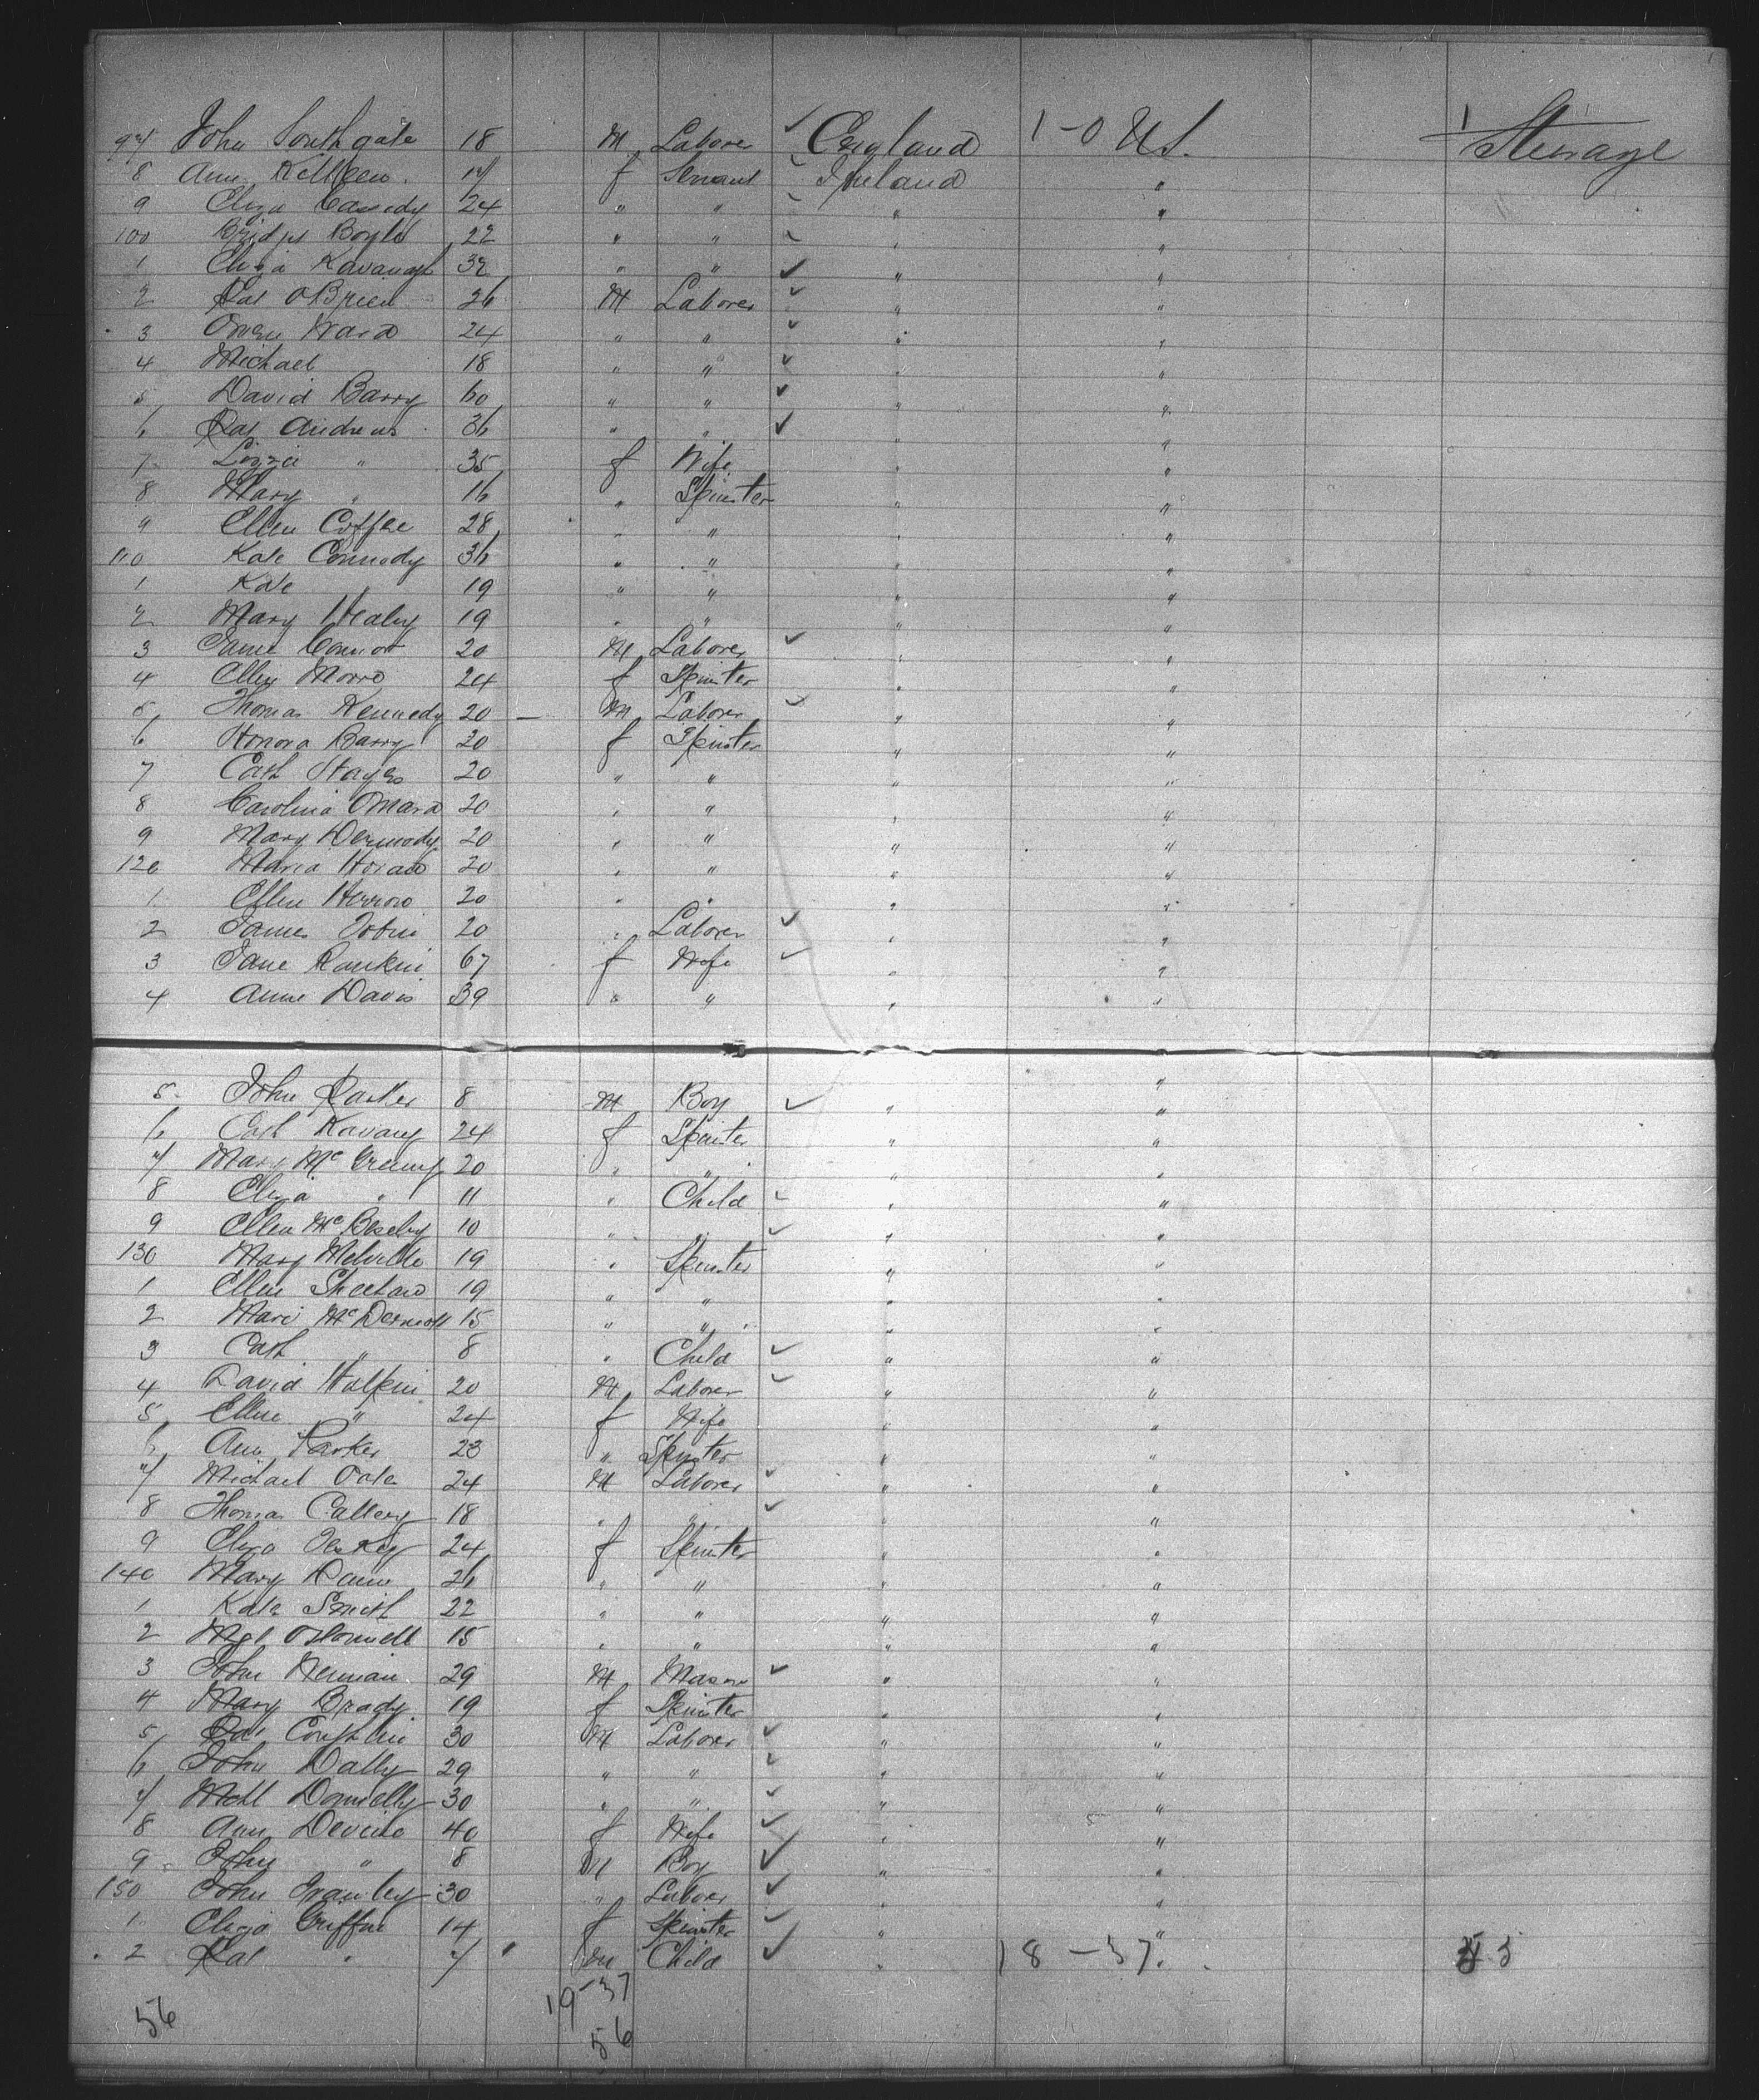 97 John Southgate 18 M Laborer ✓ England 1-0 U.S. 1 Steerage
8 Ann Killeen 17 f Servant ✓ Ireland "
9 Eliza Cassedy 24 " " ✓ " "
100 Bridget Boyle 22 " " ✓ " "
1 Eliza Kavanagh 32 " " ✓ " "
2 Pat OBrien 26 M Laborer ✓ " "
3 Owen Ward 24 " " ✓ " "
4 Michael 18 " " ✓ " "
5 David Barry 60 " " ✓ " "
6 Pat Andrews 36 " " ✓ " "
7 Lizzie " 35 f Wife " "
8 Mary " 16 " Spinster " "
9 Ellen Coffee 28 " " " "
110 Kate Connedy 36 " " " "
1 Kate " 19 " " " "
2 Mary Healy 19 " " " "
3 James Connor 20 M Laborer ✓ " "
4 Ellen 24 f Spinster " "
5 Thomas Kennedy 20 – M Laborer ✓ " "
6 Honora Barry 20 f Spinster " "
7 Cath Hayes 20 " " " "
8 Carolina OMara 20 " " " "
9 Mary Dermody 20 " " " "
120 Maria Horan 20 " " " "
1 Ellen 20 " " " "
2 James Tobin 20 " Laborer ✓ " "
3 Jane Rankin 67 f Wife ✓ " "
4 Anne Davis 39 " " " "
5 John Parker 8 M Boy ✓ " "
6 Cath Kavang 24 f Spinster " "
7 Mary 20 " " " "
8 Eliza " 11 " Child ✓ " "
9 Ellen 10 " " ✓ " "
130 Mary Melville 19 " Spinster " "
1 Ellen Sheehan 19 " " " "
2 Mari McDermott 15 " " " "
3 Cath " 8 " Child ✓ " "
4 David Halpin 20 M Laborer ✓ " "
5 Ellen " 24 f Wife " "
6 Ann Parker 23 " Spinster " "
7 Michael 24 M Laborer ✓ " "
8 Thomas Callery 18 " " ✓ " "
9 Eliza 24 f Spinster " "
140 Mary 26 " " " "
1 Kate Smith 22 " " " "
2 Mgt ODonnell 15 " " " "
3 John 29 M Mason ✓ " "
4 Mary Brady 19 f Spinster " "
5 Pat Coughlin 30 M Laborer ✓ " "
6 John Dally 29 " " ✓ " "
7 Michl Donnelly 30 " " ✓ " "
8 Ann Devine 40 f Wife ✓ " "
9 John " 8 M Boy ✓ " "
150 John 30 " Laborer ✓ " "
1 Eliza Griffin 14 f Spinster ✓ " "
2 Pat " 7 M Child ✓ " 18-37
19-37
56 56